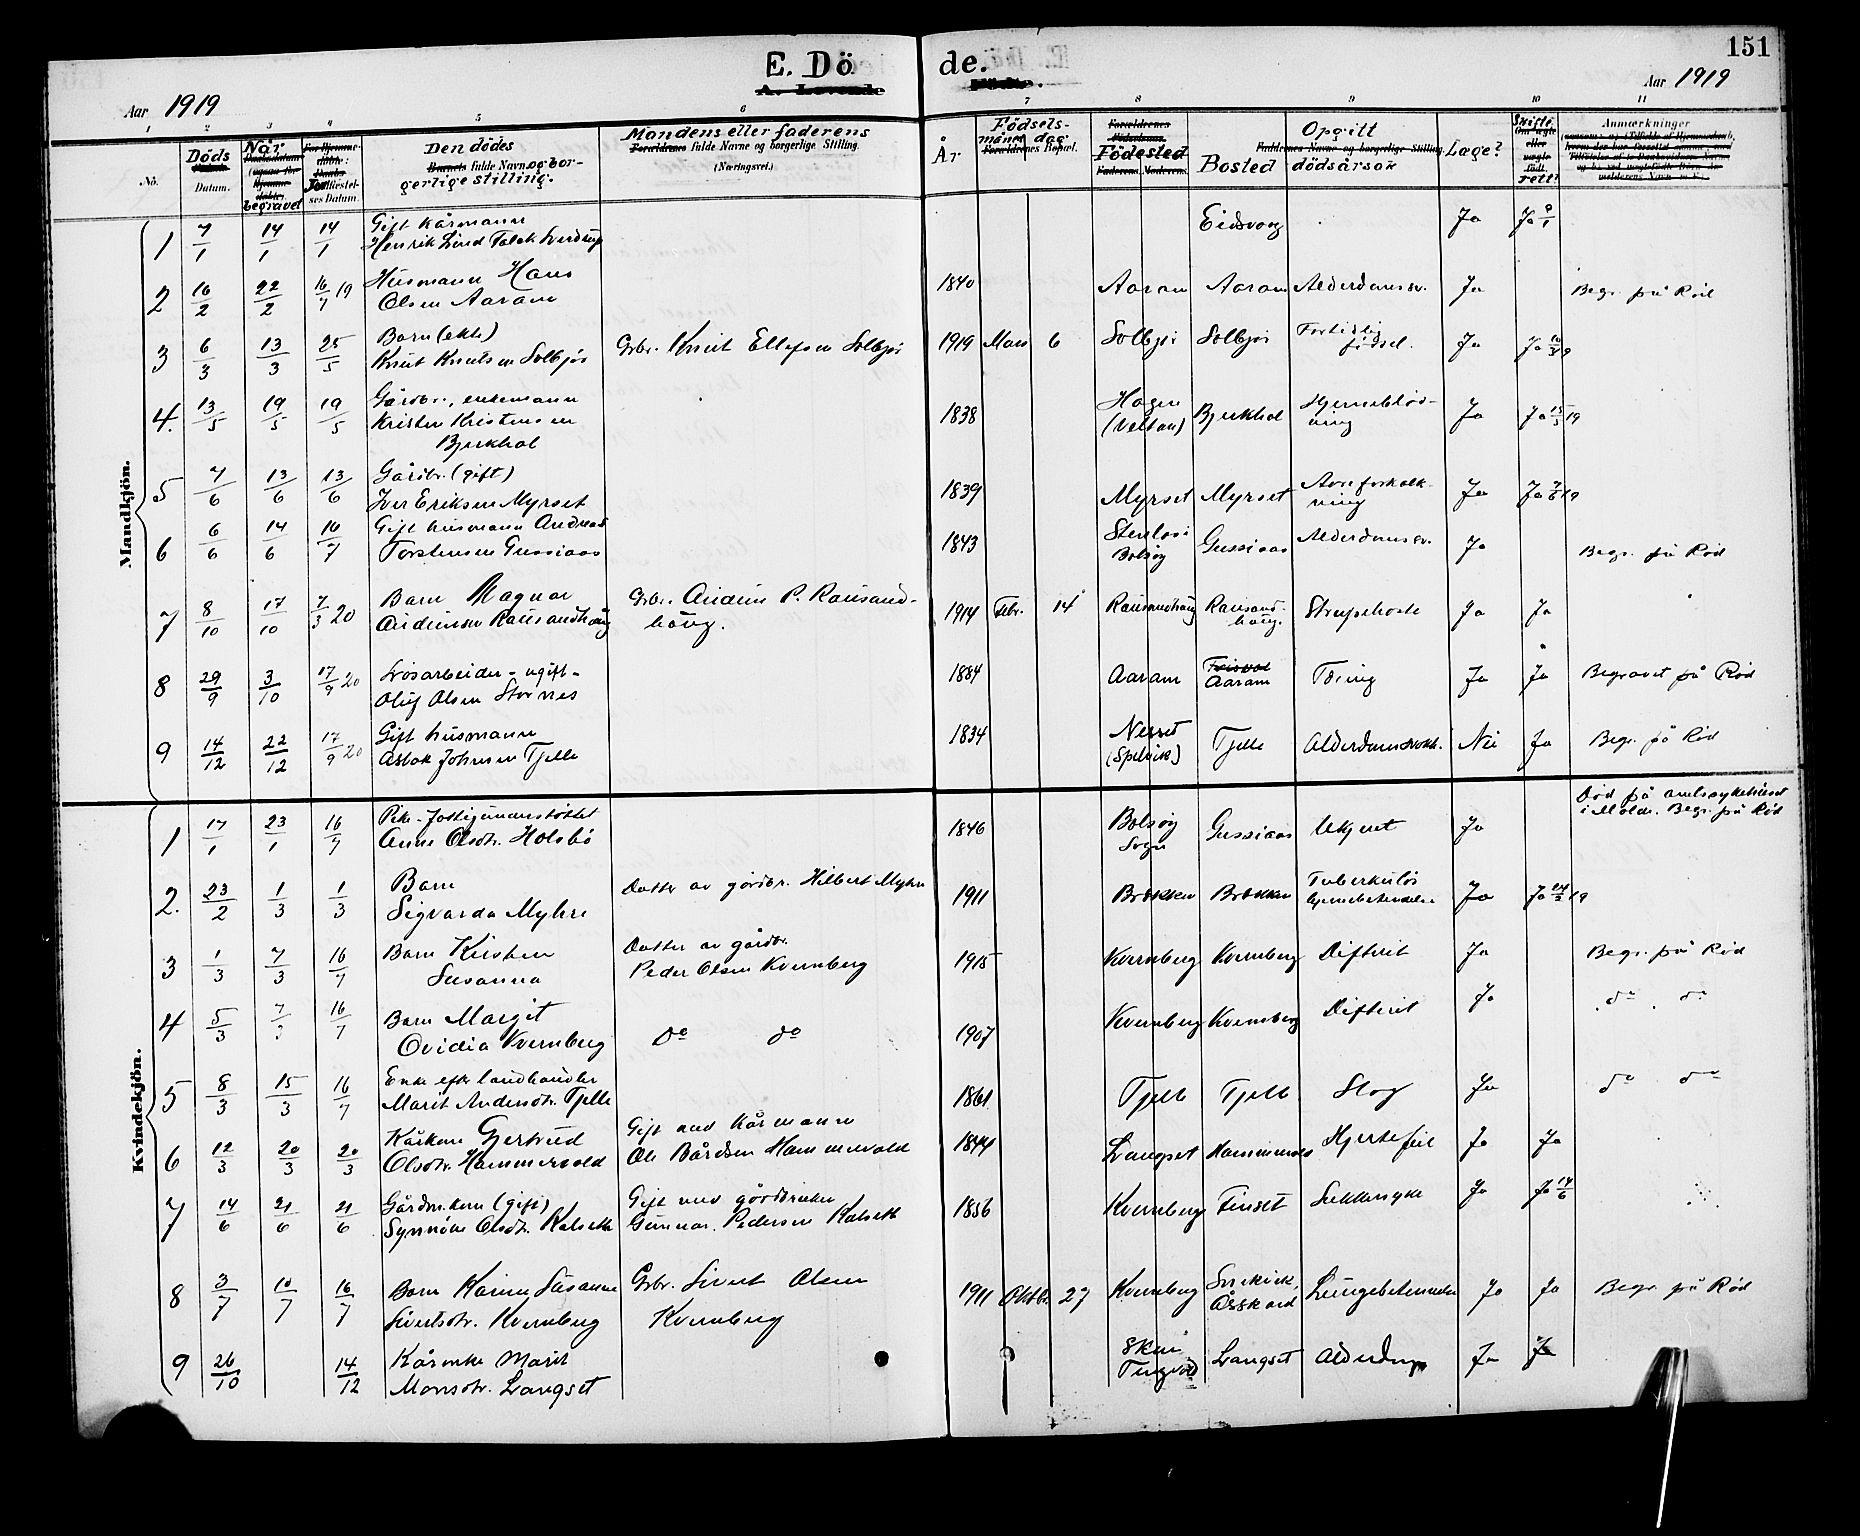 E. Dö de.
151
Aar 1919
Aar 1919
1 2 3 4 5 6 7 8 9 10 11
No.
Döds
Datum.
Når
begravet
Den dödes
fulde Navn og bor-
gerlige stilling.
Mandens eller faderens
fulde Navne og borgerlige Stilling.
(Næringsvei.)
År
Födsels-
måned dag
Födested
Bosted
Opgitt
dödsårsak
Læge?
Skifte
rett!
Anmærkninger
Mandkjön.
1 7/1 14/1 14/1 Gift kårmann
Henrik Lind Falck Sverdrup
Eidsvåg Ja Ja
2 16/2 22/2 16/7 19 Husmann Hans
Olsen Aaram
1840 Aaram Aaram Alderdomssv. Ja Begr. på Röd
3 6/3 13/3 25/5 Barn (ekte)
Knut Knutsen Solbjör
Grbr. Knut Ellefsen Solbjör 1919 Mars 6 Solbjör Solbjör Fortidlig
födsel. Ja Ja
4. 13/5 19/5 19/5 Gårdbr., enkemann
Kristen Kristensen
Bjerkhol
1838 Hagen
(Veltan) Bjerkhol Hjerneblöd-
ning Ja Ja 15/5 19
5 7/6 13/6 13/6 Gårdbr. (gift)
Iver Eriksen Myrset
1839 Myrset Myrset Aareforkalk-
ning Ja Ja 7/6 19
6 6/6 14/6 16/7 Gift husmann Andreas
Torstensen Gussiaas
1843 Bolsöy Gussiaas Alderdomssv. Ja Begr. på Röd
7 8/10 17/10 7/3 20 Barn Magnar
Andersen Rausandhaug
Grbr. P. Rausand-
haug.
1914 Febr. 14 Rausandhaug Rausand-
haug. Strupehoste Ja Ja
8 29/9 3/10 17/9 20 Lösarbeider - ugift -
Oluf Olsen Stornes
1884 Aaram Aaram Tæring Ja Ja Begravet på Röd
9 14/12 22/12 17/9 20 Gift husmann
Aslak Johnsen Tjelle
1834 Nesset
(Spelvik) Tjelle Nei Ja Begr. på Röd
Kvindekjön.
1 17/1 23/1 16/7
Anne Olsdtr. Holsbö
1846 Bolsöy
Sogn Gussiaas Ukjent Ja
Död på amtssykehuset
i Molde. Begr. på Röd
2. 23/2 1/3 1/3 Barn
Sigvarda Myhre
Datter av gårdbr. Hilbert Myhre
1911 Brækken Brækken Tuberkulös
Ja Ja 19
3 1/3 7/3 16/7 Barn Kirsten
Susanna
Datter av gårdbr.
Peder Olsen Kvernberg
1915 Kvernberg Kvernberg Difterit Ja Begr. på Röd
4 5/3 16/7 Barn Margit
Ovidia Kvernberg
Do do
1907 Kvernberg Kvernberg Difterit Ja do do
5 8/3 15/3 16/7 Enke efter landhandler
Marit Andersdtr. Tjelle
1861 Tjelle Tjelle Slag Ja do do
6 12/3 20/3 20/3 Kårkone Gjertrud
Olsdtr. Hammervold
Gift med kårmann
Ole Bårdsen Hammervold
1844 Langset Hammervold Hjertefeil Ja Ja
7 14/6 21/6 21/6 Gårdmkone (gift)
Synnöve Olsdtr. Kalseth
Gift med gårdbruker
Gunnar Pedersen Kalseth
1856 Kvernberg Finset Sukkersyke Ja Ja 14/6
8 3/7 10/7 16/7 Barn Karen Susanne
Sivertsdtr. Kvernberg
Grbr. Sivert Olsen
Kvernberg
1911 Oktbr. 27 Kvernberg
Åsskard Lungebetennelse Ja Ja Begr. på Röd
9 26/10 14/12 Kårenke Marit
Monsdtr. Langset
Tingvold Langset Ja Ja